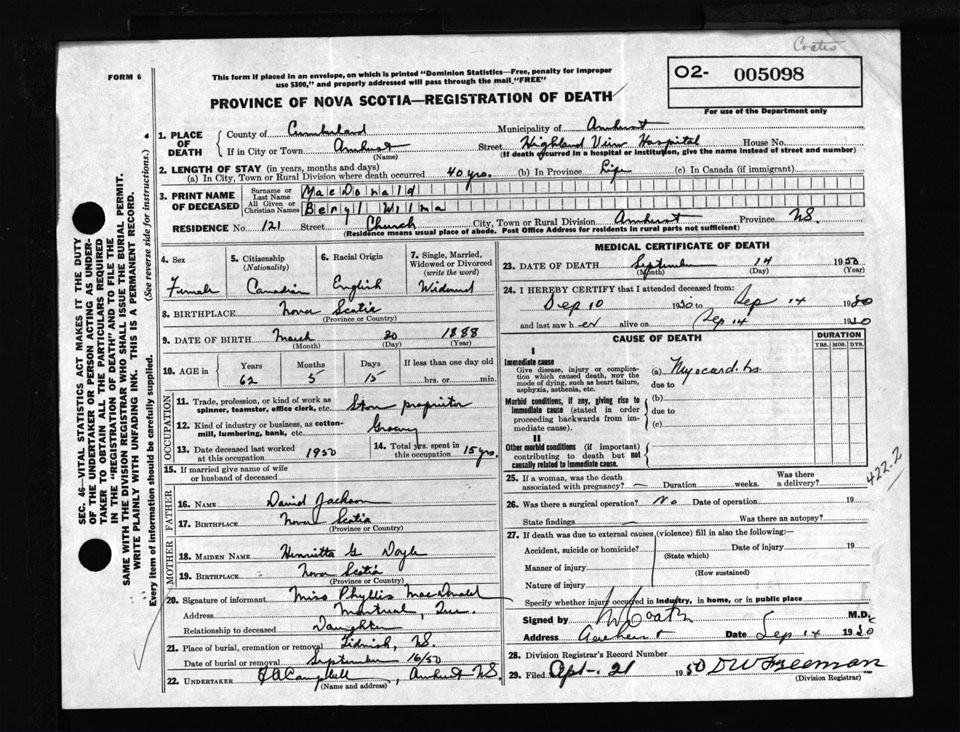 Coates
FORM 6
This form if placed in an envelope, on which is printed "Dominion Statistics—Free, penalty for improper
use $300," and properly addressed will pass through the mail "FREE"
O2- 005098
For use of the Department only
PROVINCE OF NOVA SCOTIA—REGISTRATION OF DEATH
1. PLACE OF DEATH
County of Cumberland Municipality of Amherst
If in City or Town Amherst Street Highland View Hospital House No.
(Name) (If death occurred in a hospital or institution, give the name instead of street and number)
2. LENGTH OF STAY (in years, months and days)
(a) In City, Town or Rural Division where death occurred 40 yrs. (b) In Province Life (c) In Canada (if immigrant)
3. PRINT NAME OF DECEASED
Surname or Last Name MacDonald
All Given or Christian Names Beryl Wilma
RESIDENCE No. 121 Street Church City, Town or Rural Division Amherst Province N.S.
(Residence means usual place of abode. Post Office Address for residents in rural parts not sufficient)
4. Sex
Female
5. Citizenship (Nationality)
Canadian
6. Racial Origin
English
7. Single, Married, Widowed or Divorced (write the word)
Widowed
8. BIRTHPLACE Nova Scotia
(Province or Country)
9. DATE OF BIRTH March 30 1888
(Month) (Day) (Year)
10. AGE in Years Months Days If less than one day old
62 5 15 hrs. or min.
OCCUPATION
11. Trade, profession, or kind of work as
spinner, teamster, office clerk, etc. Store proprietor
12. Kind of industry or business, as cotton-
mill, lumbering, bank, etc. Grocery
13. Date deceased last worked at this occupation 1950
14. Total yrs. spent in this occupation 15 yrs.
15. If married give name of wife
or husband of deceased
FATHER
16. NAME David Jackson
17. BIRTHPLACE Nova Scotia
(Province or Country)
MOTHER
18. MAIDEN NAME Henrietta G Doyle
19. BIRTHPLACE Nova Scotia
(Province or Country)
20. Signature of informant Miss Phyllis MacDonald
Address Montreal, Que.
Relationship to deceased Daughter
21. Place of burial, cremation or removal Tidnish, N.S.
Date of burial or removal September 16/50
22. UNDERTAKER Campbell, Amherst NS
(Name and address)
MEDICAL CERTIFICATE OF DEATH
23. DATE OF DEATH September 14 1950
(Month) (Day) (Year)
24. I HEREBY CERTIFY that I attended deceased from:
Sep 10 1950 to Sep 14 1950
and last saw her alive on Sep 14 1950
CAUSE OF DEATH
DURATION
YRS. MOS. DYS.
I
Immediate cause
Give disease, injury or complica-
tion which caused death, NOT the
mode of dying, such as heart failure,
asphyxia, asthenia, etc.
(a) Myocarditis
due to
Morbid conditions, if any, giving rise to
immediate cause (stated in order
proceeding backwards from im-
mediate cause).
(b)
due to
(c)
II
Other morbid conditions (if important)
contributing to death but not
causally related to immediate cause.
422.2
25. If a woman, was the death
associated with pregnancy? — Duration weeks. Was there a delivery?
26. Was there a surgical operation? No Date of operation 19
State findings — Was there an autopsy?
27. If death was due to external causes (violence) fill in also the following:
Accident, suicide or homicide? Date of injury 19
(State which)
Manner of injury
(How sustained)
Nature of injury
Specify whether injury occurred in industry, in home, or in public place
Signed by Coates M.D.
Address Amherst Date Sep 14 1950
28. Division Registrar's Record Number
29. Filed Sept. 21 1950 DW Freeman
(Division Registrar)
SEC. 46—VITAL STATISTICS ACT MAKES IT THE DUTY
OF THE UNDERTAKER OR PERSON ACTING AS UNDER-
TAKER TO OBTAIN ALL THE PARTICULARS REQUIRED
IN THE "REGISTRATION OF DEATH" AND TO FILE THE
SAME WITH THE DIVISION REGISTRAR WHO SHALL ISSUE THE BURIAL PERMIT.
WRITE PLAINLY WITH UNFADING INK. THIS IS A PERMANENT RECORD.
Every item of information should be carefully supplied. (See reverse side for instructions.)